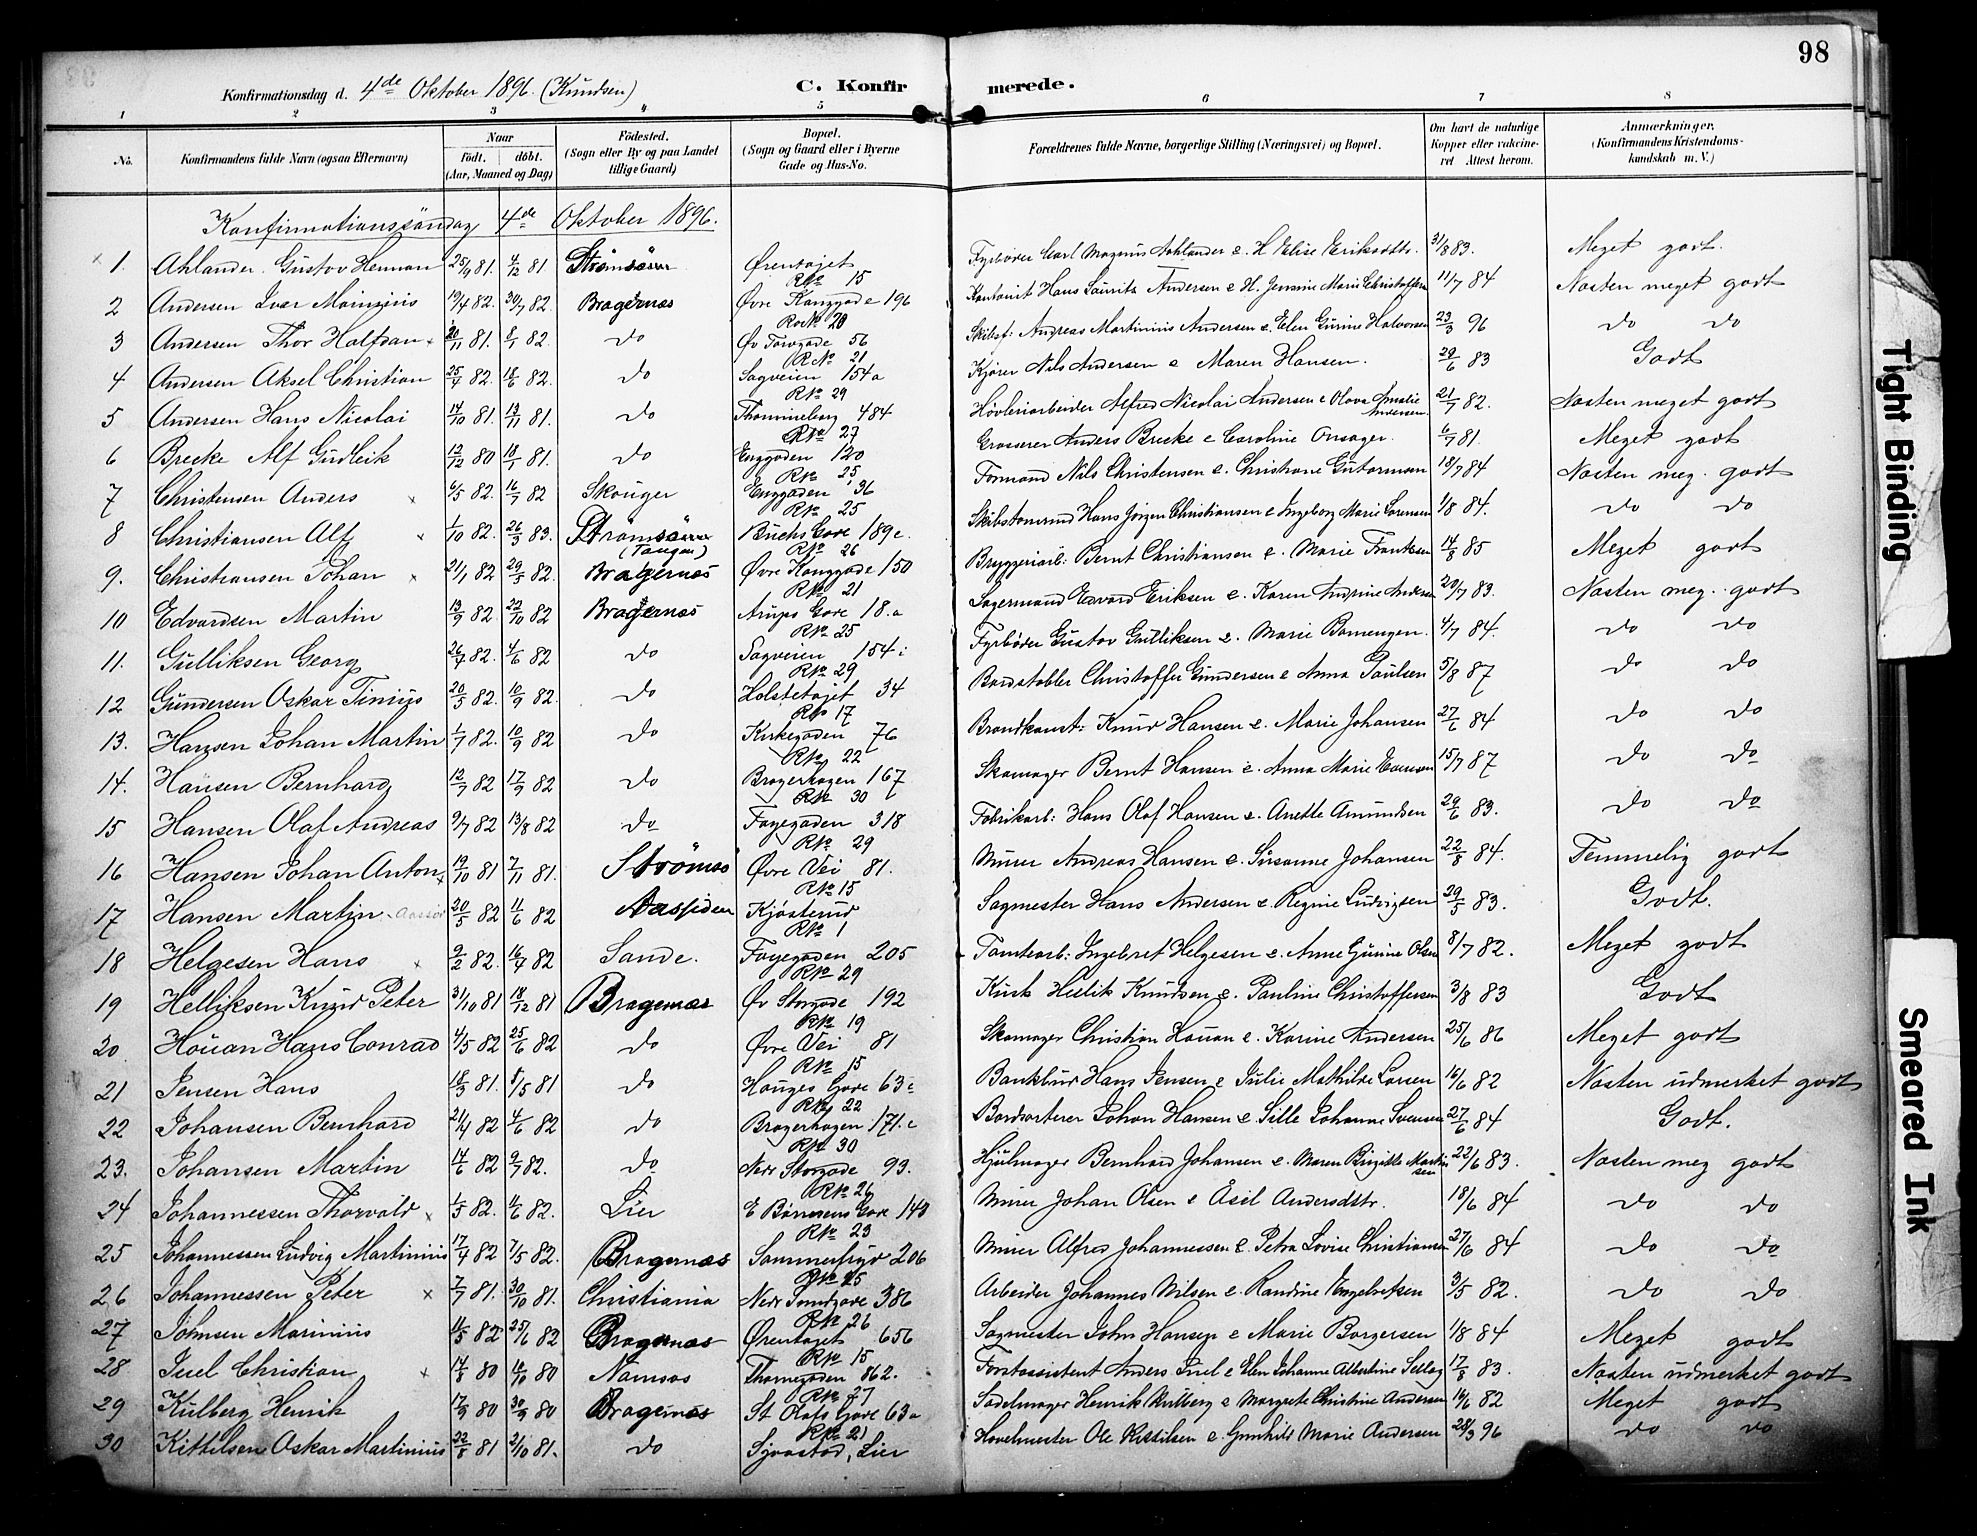 98
Konfirmationsdag d. 4de Oktober 1896. (Knudsen)
C. Konfirmerede.
1 2 3 4 5 6 7 8
No. Konfirmandens fulde Navn (ogsaa Efternavn) Naar født. døbt. (Aar, Maaned og Dag) Fødested. (Sogn eller By og paa Landet tillige Gaard) Bopæl. (Sogn og Gaard eller i Byerne Gade og Hus-No. Forældrenes fulde Navne, borgerlige Stilling (Næringsvei) og Bopæl. Om havt de naturlige Kopper eller vaccineret Attest herom. Anmærkninger. (Konfirmandens Kristendomskundskab m. V.)
Konfirmationssöndag 4de Oktober 1896.
1. Ahlander. Gustov Herman 25/9 81. 4/12 81 Strømsø Ørentøjet Fyrbøder Carl Magnus Aahlander e. H Elise Eriksdttr. 31/8 83. Meget godt.
RNo 15
2 Andersen Ivar Mainzius 19/4 82. 30/7 82. Bragernæs Øvre Langgade 196 Hans Lauritz Andersen e. H. Jensine Marie Christoffersen 11/7 84 Næsten meget godt
Rode 20
3 Andersen Thor Halfdan 20/11 81. 8/1 82. do Øv Torvgade 56 Skibsf: Andreas Martinius Andersen e. Elen Gurine Halvorsen 23/3 96 do do
RNo 21
4 Andersen Aksel Christian 25/4 82. 18/6 82. do Sagveien 154a Kjører Nils Andersen e Maren Hansen. 29/6 83 Godt
RNo 29
5 Andersen Hans Nicolai 14/10 81. 13/11 81. do 484 Høvleriarbeider Alfred Nicolai Andersen e Olava Amalie Andersen 21/7 82. Næsten meget godt
RNo 27
6 Brecke Alf Gudleik 12/12 80 18/1 81. do Enggaden 120 Grosserer Anders Brecke e Caroline Onsager. 6/7 81. Meget godt
RNo 25
7 Christensen Anders 6/5 82. 16/7 82 Skouger Enggaden 36 Formand Nils Christensen e. Christiane Gutormsen 18/7 84 Næsten meg. godt
RNo 25
8 Christiansen Alf 1/10 82. 26/3 83. Strømsø (Tangen) Buchs Gade 189c. Skibstømmermand Hans Jørgen Christiansen e Ingeborg Marie Sørensen 1/8 84. do do
RNo 26
9. Christiansen Johan 21/1 82 29/5 82. Bragernæs Øvre Langgade 150 Bryggeriarb. Bernt Christiansen e. Marie Frantsen 14/8 85 Meget godt
RNo 21
10 Edvardsen Martin 13/9 82 22/10 82 Bragernæs Arups Gade 18.a Sagermand Edvard Eriksen e. Karen Andrine Andersen 20/7 83. Næsten meg. godt
RNo 25
11. Gulliksen Georg 26/4 82. 4/6 82 do Sagveien 154i Fyrbøder Gustov Gulliksen e. Marie Bamengen. 4/7 84. do do
RNo 29
12 Gundersen Oskar Tinius 20/5 82. 10/9 82. do Holstetøjet 34 Bordstabler Christoffer Gundersen e Anna Paulsen 5/8 87 do do
RNo 17
13. Hansen Johan Martin 1/7 82. 10/9 82 do Kirkegaden 76 Brandkonst: Knud Hansen e. Marie Johansen 27/6 84 do do
RNo 22
14. Hansen Bernhard 12/7 82 17/9 82 do Bragerhagen 167 Skomager Bernt Hansen e. Anna Marie Evensen 15/7 87 do do
RNo 30
15 Hansen Olaf Andreas 9/7 82 13/8 82 do Fayegaden 318 Fabrikarb: Hans Olaf Hansen e. Anette Amundsen 29/6 83. do do
RNo 29
16 Hansen Johan Anton 19/10 81 7/11 81. Strømsø Øvre Vei 81. Murer Andreas Hansen e. Susanne Johansen 22/8 84. Temmelig godt
RNo 15
17 Hansen Martin 20/5 82 11/6 82 Aassiden Kjøsterud Sagmester Hans Andersen e. Regine Ludvigsen 29/5 83. Godt.
RNo 1
18 Helgesen Hans 2/2 82. 16/4 82 Sande. Fayegaden 205 Tomtearb: Ingebret Helgesen e. Anne Gurine Olsen 8/7 82. Meget godt
RNo 29
19 Helliksen Knud Peter 31/10 81 18/12 81 Bragernæs Øv Storgade 192 Kusk Hellik Knudsen e. Pauline Christoffersen 3/8 83 Godt
RNo 19
20 Houan Hans Conrad 4/5 82 25/6 82 do Øvre Vei 81 Skomager Christian Houan e. Karine Andersen 25/6 86 Meget godt
RNo 15
21 Jensen Hans 18/3 81. 8/5 81 do Hauges Gade 63c Bankbud Hans Jensen e Julie Mathilde Larsen 16/6 82 Næsten udmerket godt
RNo 22
22 Johansen Bernhard 21/4 82 4/6 82 do Bragerhagen 171.c Bordsorterer Johan Hansen e. Sille Johanne Svensen 27/6 84 Godt.
RNo 30
23. Johansen Martin 14/6 82 9/7 82. do Nedr Storgade 93. Hjulmager Bernhard Johansen e. Maren Birgitte Martinsen 22/6 83. Næsten meg godt
RNo 26
24 Johannessen Thorvald 1/5 82. 11/6 82. Lier E Børresens Gade 140 Murer Johan Olsen e Åsil Andersdtr. 18/6 84 do do
RNo 23
25 Johannessen Ludvig Martinius 17/4 82 7/5 82. Bragernæs Sommerfryd 206 Murer Alfred Johannessen e. Petra Lovise Christiansen 27/6 84 do do
RNo 25
26 Johannessen Peter 7/7 81. 30/10 81. Christiania Nedr Sundgade 386 Arbeider Johannes Nilsen e. Randine Engebretsen 3/5 82. do do
RNo 26
27 Johnsen Marinius 11/5 82 25/6 82 Bragernæs Ørentøjet 656 Sagmester John Hansen e Marie Borgersen 1/8 84 Meget godt
RNo 15
28 Juel Christian 14/8 80 10/10 80 Namsos Thornegaden 862. Forstassistent Anders Juel e Elen Johanne Albertine Selbog 17/8 83. Næsten udmerket godt
RNo 27
29 Kulberg Henrik 17/9 80 30/9 80 Bragernæs St Olafs Gade 63a Sadelmager Henrik Kulberg e Margrete Christine Andersen 16/6 82 Meget godt
RNo 21
30 Kittelsen Oskar Martinius 22/8 81 2/10 81. do Sjøastad, Lier Høvelmester Ole Kittilsen e. Gunhild Marie Andersen 28/3 96 do do
Tight Binding
Smeared Ink